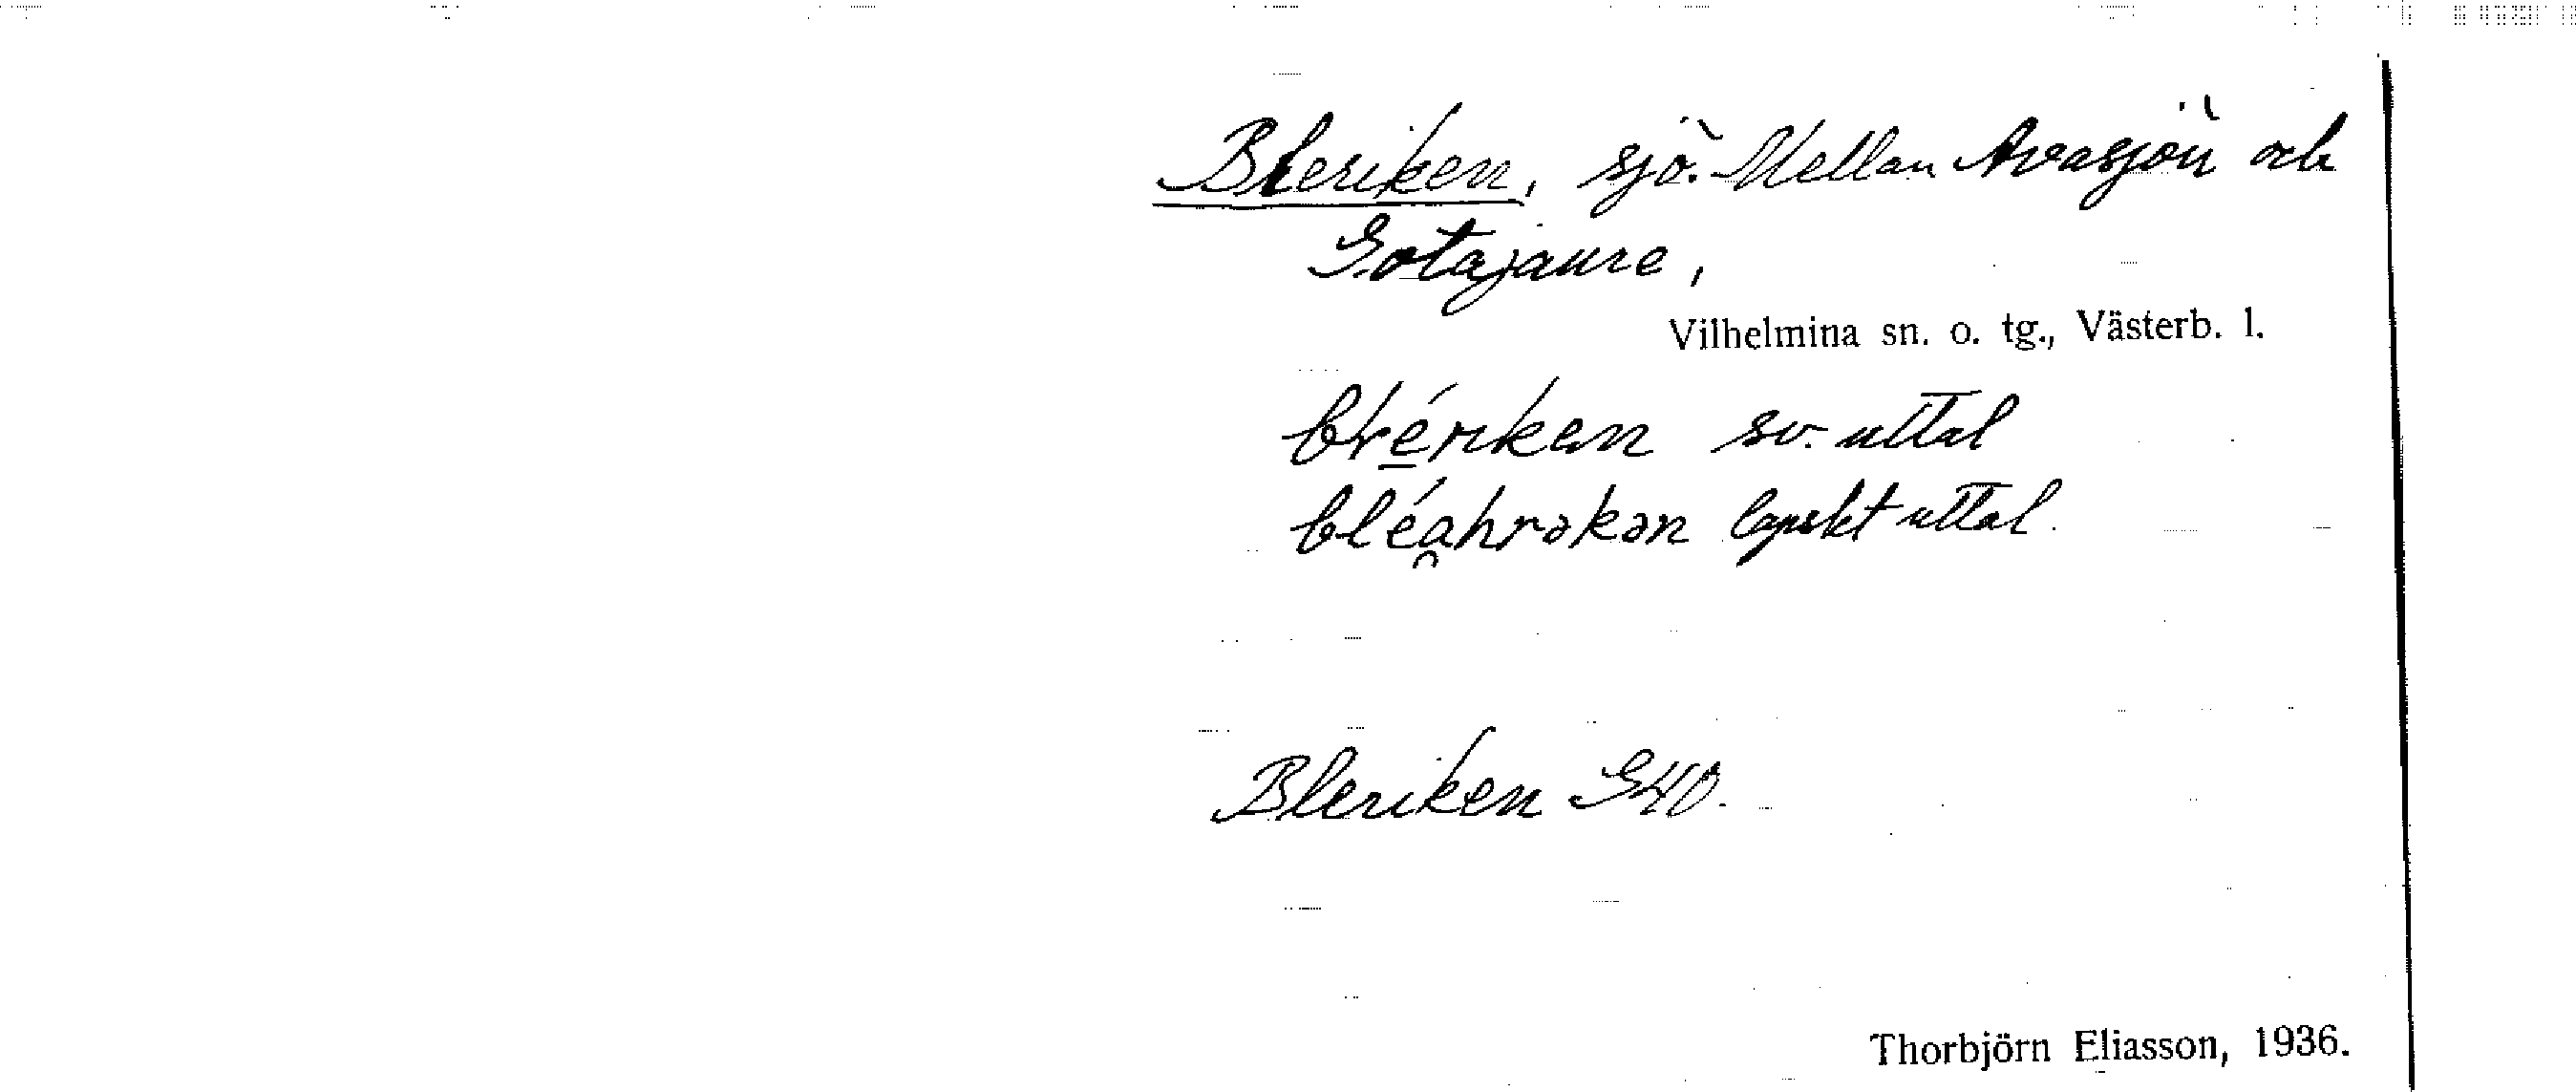 Bleriken, sjö. Mellan Avasjön och
Gotajaure,
Vilhelmina sn. o. tg., Västerb. l.
sv. uttal
bléahrəkən lapskt uttal.
Bleriken
Thorbjörn Eliasson, 1936.